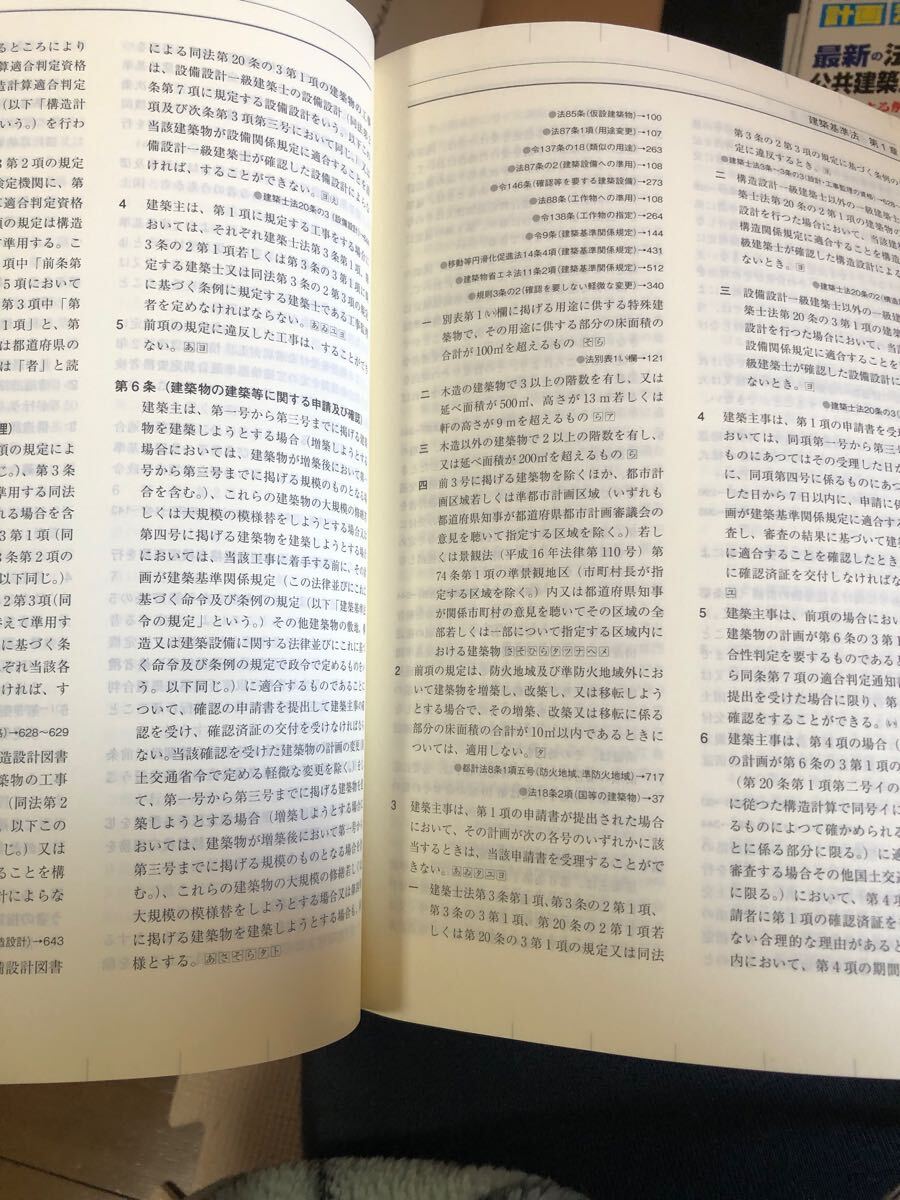 るところにより
算適合判定資格
造計算適合判定
(以下「構造計
いう。)を行わ
3第2項の規定
検定機関に、第
に適合すること
項の規定は構造
て準用する。こ
項中「前条第
5項において
第3項中「第
1項」と、第
は都道府県の
は「者」と読
項の規定によ
じ。)、第3条
準用する同法
れる場合を含
第1項(同
3条第2項の
以下同じ。)
2第3項(同
に基づく条
ぞれ当該各
ければ、す
→628〜629
造設計図書
築物の工事
(同法第2
以下この
じ。)又は
ることを構
計によらな
造設計)→643
備設計図書
による同法第20条の3第1項の建築物の工事
は、設備設計一級建築士の設備設計
条第7項に規定する設備設計をいう。以下この
項及び次条第3項第三号において同じ。)又は
当該建築物が設備関係規定に適合することを
備設計一級建築士が確認した設備設計によらな
ければ、することができない。ヨえ
●建築士法20条の3(設備設計)→644
4 建築主は、第1項に規定する工事をする場合に
おいては、それぞれ建築士法第3条第1項、第
3条の2第1項若しくは第3条の3第1項に規
定する建築士又は同法第3条の2第3項の規定
に基づく条例に規定する建築士である工事監理
者を定めなければならない。あゐユヨ
5 前項の規定に違反した工事は、することができ
ない。あヨ
第6条(建築物の建築等に関する申請及び確認)
建築主は、第一号から第三号までに掲げる建築
物を建築しようとする場合(増築しようとする
場合においては、建築物が増築後において第一
号から第三号までに掲げる規模のものとなる場
合を含む。)、これらの建築物の大規模の修繕若
しくは大規模の模様替をしようとする場合又は
第四号に掲げる建築物を建築しようとする場合
においては、当該工事に着手する前に、その計
画が建築基準関係規定(この法律並びにこれに
基づく命令及び条例の規定(以下「建築基準法
令の規定」という。)その他建築物の敷地、構
造又は建築設備に関する法律並びにこれに基づ
く命令及び条例の規定で政令で定めるものをい
う。以下同じ。)に適合するものであることに
ついて、確認の申請書を提出して建築主事の確
認を受け、確認済証の交付を受けなければなら
ない。当該確認を受けた建築物の計画の変更(国
土交通省令で定める軽微な変更を除く。)をし
て、第一号から第三号までに掲げる建築物を建
築しようとする場合(増築しようとする場合に
おいては、建築物が増築後において第一号から
第三号までに掲げる規模のものとなる場合を含
む。)、これらの建築物の大規模の修繕若しくは
大規模の模様替をしようとする場合又は第四号
に掲げる建築物を建築しようとする場合も、同
様とする。あさそらタト
●法85条(仮設建築物)→100
●法87条1項(用途変更)→107
●令137条の18(類似の用途)→263
●法87条の2(建築設備への準用)→108
●令146条(確認等を要する建築設備)→273
●法88条(工作物への準用)→108
●令138条(工作物の指定)→264
●令9条(建築基準関係規定)→144
●移動等円滑化促進法14条4項(建築基準関係規定)→431
●建築物省エネ法11条2項(建築基準関係規定)→512
●規則3条の2(確認を要しない軽微な変更)→340
一 別表第1い欄に掲げる用途に供する特殊建
築物で、その用途に供する部分の床面積の
合計が100㎡を超えるもの そら
●法別表1い欄→121
二 木造の建築物で3以上の階数を有し、又は
延べ面積が500㎡、高さが13m若しくは
軒の高さが9mを超えるもの らア
三 木造以外の建築物で2以上の階数を有し、
又は延べ面積が200㎡を超えるもの ら
四 前3号に掲げる建築物を除くほか、都市計
画区域若しくは準都市計画区域(いずれも
都道府県知事が都道府県都市計画審議会の
意見を聴いて指定する区域を除く。)若し
くは景観法(平成16年法律第110号)第
74条第1項の準景観地区(市町村長が指
定する区域を除く。)内又は都道府県知事
が関係市町村の意見を聴いてその区域の全
部若しくは一部について指定する区域内に
おける建築物 さそひらタツナヘメ
2 前項の規定は、防火地域及び準防火地域外にお
いて建築物を増築し、改築し、又は移転しよう
とする場合で、その増築、改築又は移転に係る
部分の床面積の合計が10㎡以内であるときに
ついては、適用しない。タ
●都計法8条1項五号(防火地域、準防火地域)→717
●法18条2項(国等の建築物)→37
3 建築主事は、第1項の申請書が提出された場合
において、その計画が次の各号のいずれかに該
当するときは、当該申請書を受理することがで
きない。あゐタユヨ
一 建築士法第3条第1項、第3条の2第1項、
第3条の3第1項、第20条の2第1項若
しくは第20条の3第1項の規定又は同法
建築基準法 第1章
第3条の2第3項の規定に基づく条例の
定に違反するとき。ヨ
●建築士法3条〜3条の3(設計・工事監理の資格)→628
二 構造設計一級建築士以外の一級建築
士法第20条の2第1項の建築物の
設計を行つた場合において、当該建
構造関係規定に適合することを構
級建築士が確認した構造設計による
ないとき。ヨ
●建築士法20条の2(構造
三 設備設計一級建築士以外の一級建
築士法第20条の3第1項の建築物
設計を行つた場合において、当該
設備関係規定に適合することを
級建築士が確認した設備設計に
ないとき。ヨ
●建築士法20条の3
4 建築主事は、第1項の申請書を受
おいては、同項第一号から第三
ものにあつてはその受理した日か
に、同項第四号に係るものにあつ
した日から7日以内に、申請に係
画が建築基準関係規定に適合する
査し、審査の結果に基づいて建築
に適合することを確認したとき
に確認済証を交付しなければな
ユ
5 建築主事は、前項の場合におい
建築物の計画が第6条の3第1
合性判定を要するものであると
ら同条第7項の適合判定通知書
提出を受けた場合に限り、第
確認をすることができる。い
6 建築主事は、第4項の場合(
の計画が第6条の3第1項
(第20条第1項第二号イの
に従つた構造計算で同号イに
るものによつて確かめられる
とに係る部分に限る。)に適
審査する場合その他国土交通
に限る。)において、第4項
請者に第1項の確認済証を
ない合理的な理由があると
内において、第4項の期間
計画
最新の法
公共建築